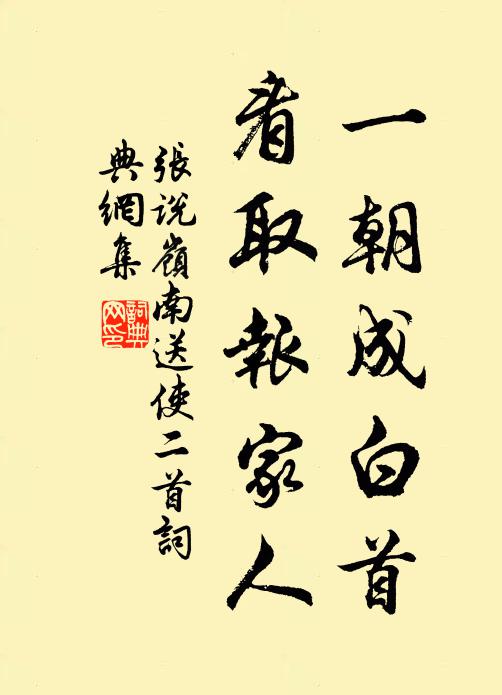 一朝成白首
看取報家人
張說嶺南送使二首詞
典網集
詞典網印